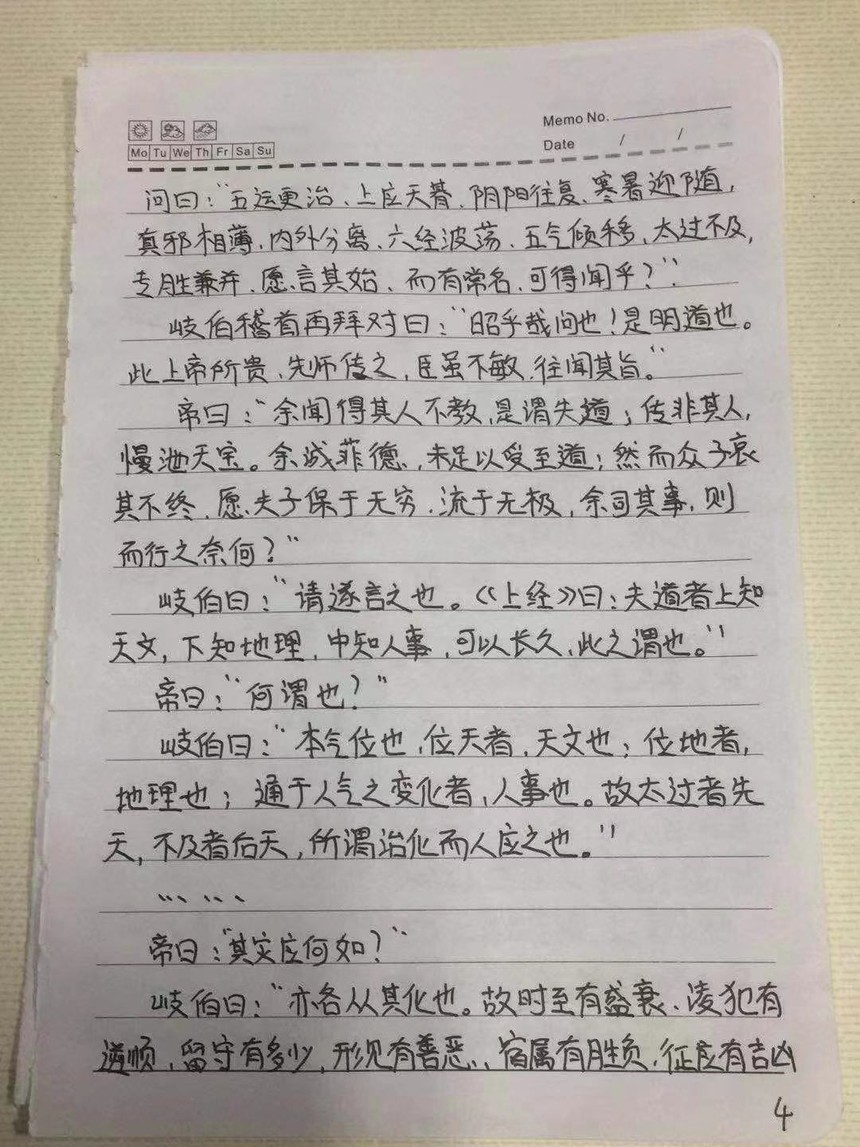 Memo No.
Mo Tu We Th Fr Sa Su
Date / /
问曰：“五运更治、上应天朞、阴阳往复、寒暑迎随，
真邪相薄、内外分离、六经波荡、五气倾移、太过不及，
专胜兼并、愿言其始、而有常名、可得闻乎？”
岐伯稽首再拜对曰：“昭乎哉问也！是明道也。
此上帝所贵、先师传之，臣虽不敏、往闻其旨。”
帝曰：“余闻得其人不教、是谓失道；传非其人，
慢泄天宝。余诚菲德，未足以受至道；然而众子哀
其不终、愿夫子保于无穷、流于无极，余司其事，则
而行之奈何？”
岐伯曰：“请遂言之也。《上经》曰：夫道者上知
天文，下知地理，中知人事，可以长久，此之谓也。”
帝曰：“何谓也？”
岐伯曰：“本气位也，位天者，天文也；位地者，
地理也；通于人气之变化者，人事也。故太过者先
天，不及者后天，所谓治化而人应之也。”
……
帝曰：“其灾应何如？”
岐伯曰：“亦各从其化也。故时至有盛衰、凌犯有
逆顺，留守有多少，形见有善恶、宿属有胜负，征应有吉凶
4